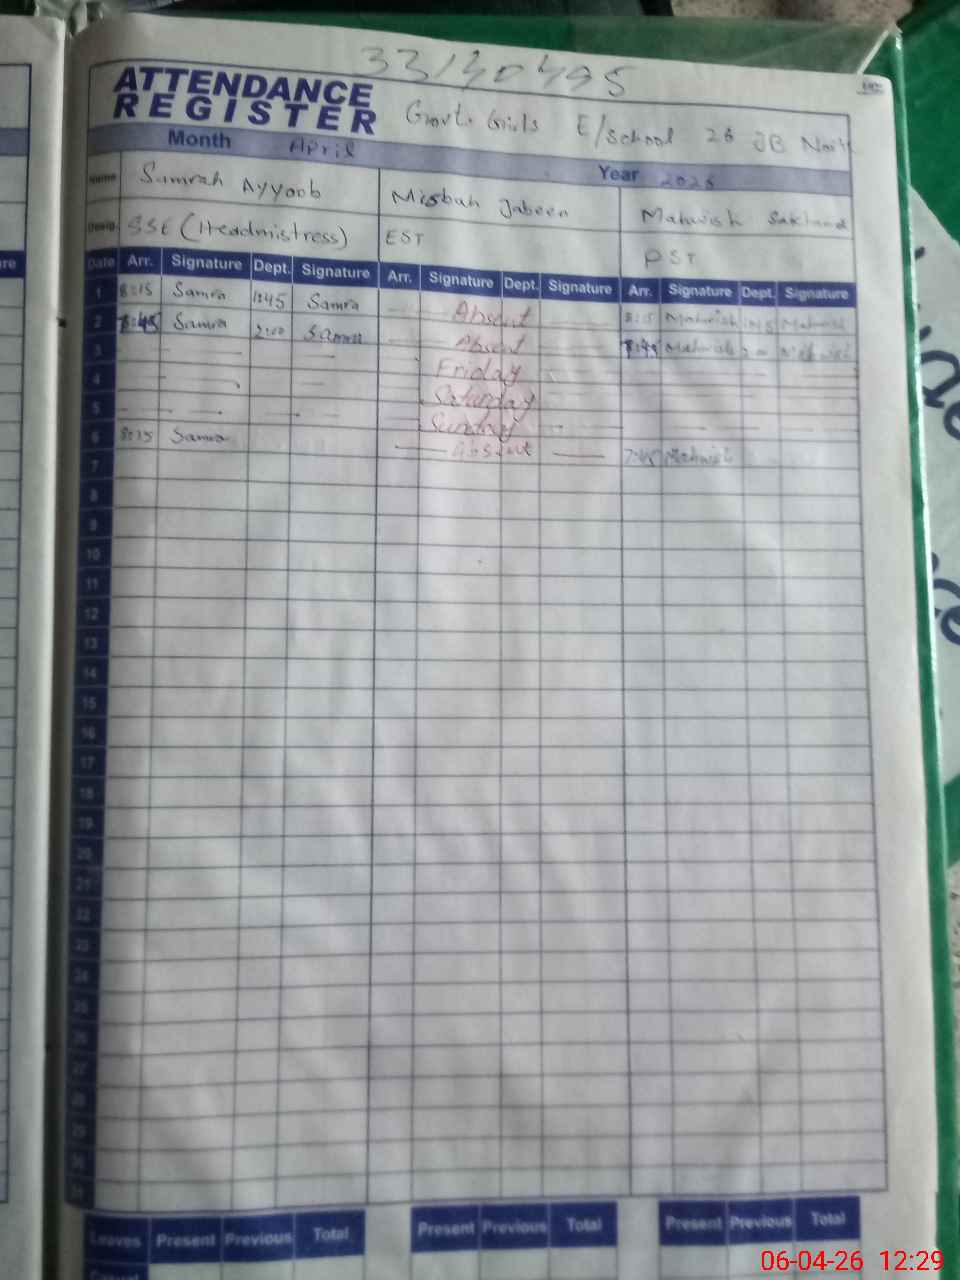 33140495
ATTENDANCE
REGISTER
Govt. Girls E/School 26 JB
Month April Year
Name Samrah Ayyoob Misbah Jabeen Mahwish
Desig. SSE (Headmistress) EST PST
Date Arr. Signature Dept. Signature Arr. Signature Dept. Signature Arr. Signature Dept. Signature
1 8:15 Samra 1:45 Samra Absent 8:15 Mahwish 1:45 Mahwish
2 8:45 Samra 2:00 Samra Absent Mahwish
3 Friday
4 Saturday
5 Sunday
6 8:15 Samra Absent 7:45 Mahwish
7
8
9
10
11
12
13
14
15
16
17
18
19
20
21
22
23
24
25
26
27
28
29
30
31
Leaves Present Previous Total Present Previous Total Present Previous Total
06-04-26 12:29